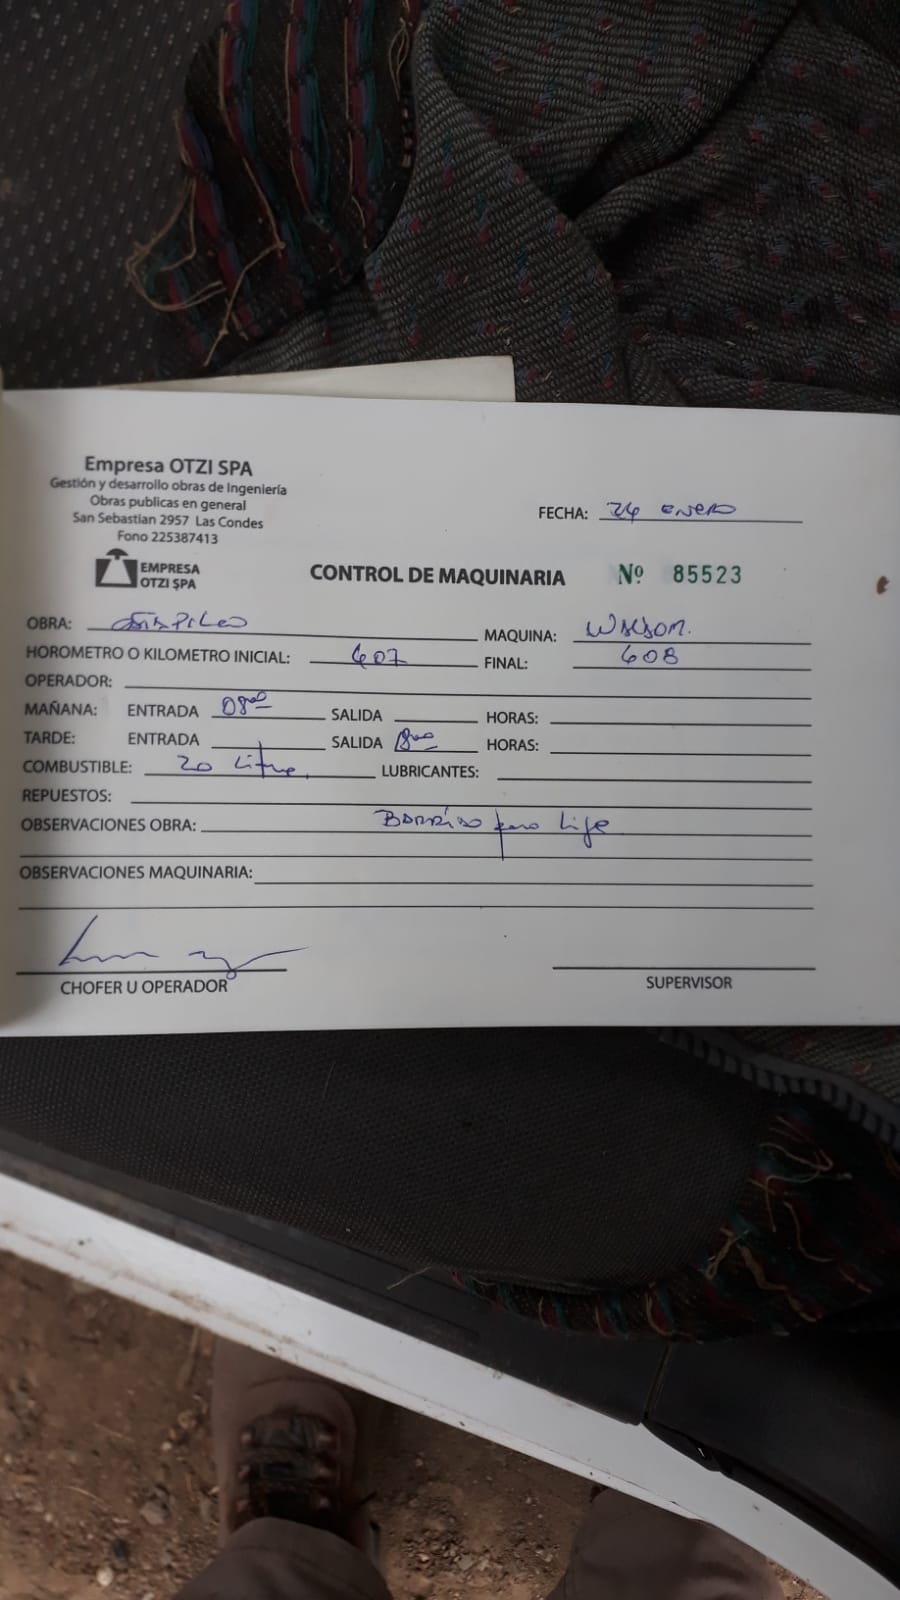 Empresa OTZI SPA
Gestión y desarrollo obras de Ingeniería
Obras publicas en general
San Sebastian 2957 Las Condes
Fono 225387413
EMPRESA
OTZI SPA
FECHA: 24 enero
CONTROL DE MAQUINARIA Nº 85523
OBRA: MAQUINA:
HOROMETRO O KILOMETRO INICIAL: 607 FINAL: 608
OPERADOR:
MAÑANA: ENTRADA 08⁰⁰ SALIDA HORAS:
TARDE: ENTRADA SALIDA 18⁰⁰ HORAS:
COMBUSTIBLE: 20 Litros LUBRICANTES:
REPUESTOS:
OBSERVACIONES OBRA: Barrido para
OBSERVACIONES MAQUINARIA:
CHOFER U OPERADOR SUPERVISOR